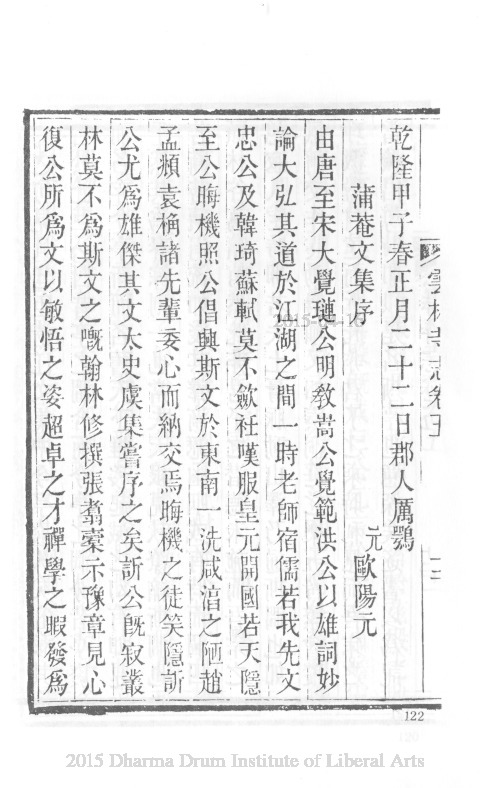 乾隆甲子春正月二十二日郡人厲鶚
蒲菴文集序
元 歐陽元
由唐至宋大覺璉公明教嵩公覺範洪公以雄詞妙
論大弘其道於江湖之間一時老師宿儒若我先文
忠公及韓琦蘇軾莫不歛衽嘆服皇元開國若天隱
至公晦機照公倡興斯文於東南一洗咸淳之陋趙
孟頫袁桷諸先輩委心而納交焉晦機之徒笑隱訢
公尤爲雄傑其文太史虞集嘗序之矣訢公旣寂叢
林莫不爲斯文之嘅翰林修撰張翥橐示豫章見心
復公所爲文以敏悟之姿超卓之才禪學之暇發爲
雲林寺志卷五
二
122
2015 Dharma Drum Institute of Liberal Arts